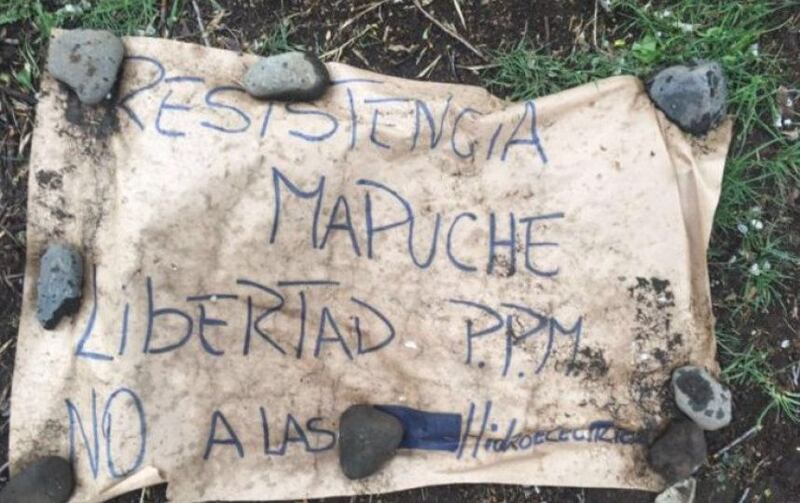 RESISTENCIA
MAPUCHE
LIBERTAD P.P.M.
NO A LAS HidROELECTRICAS